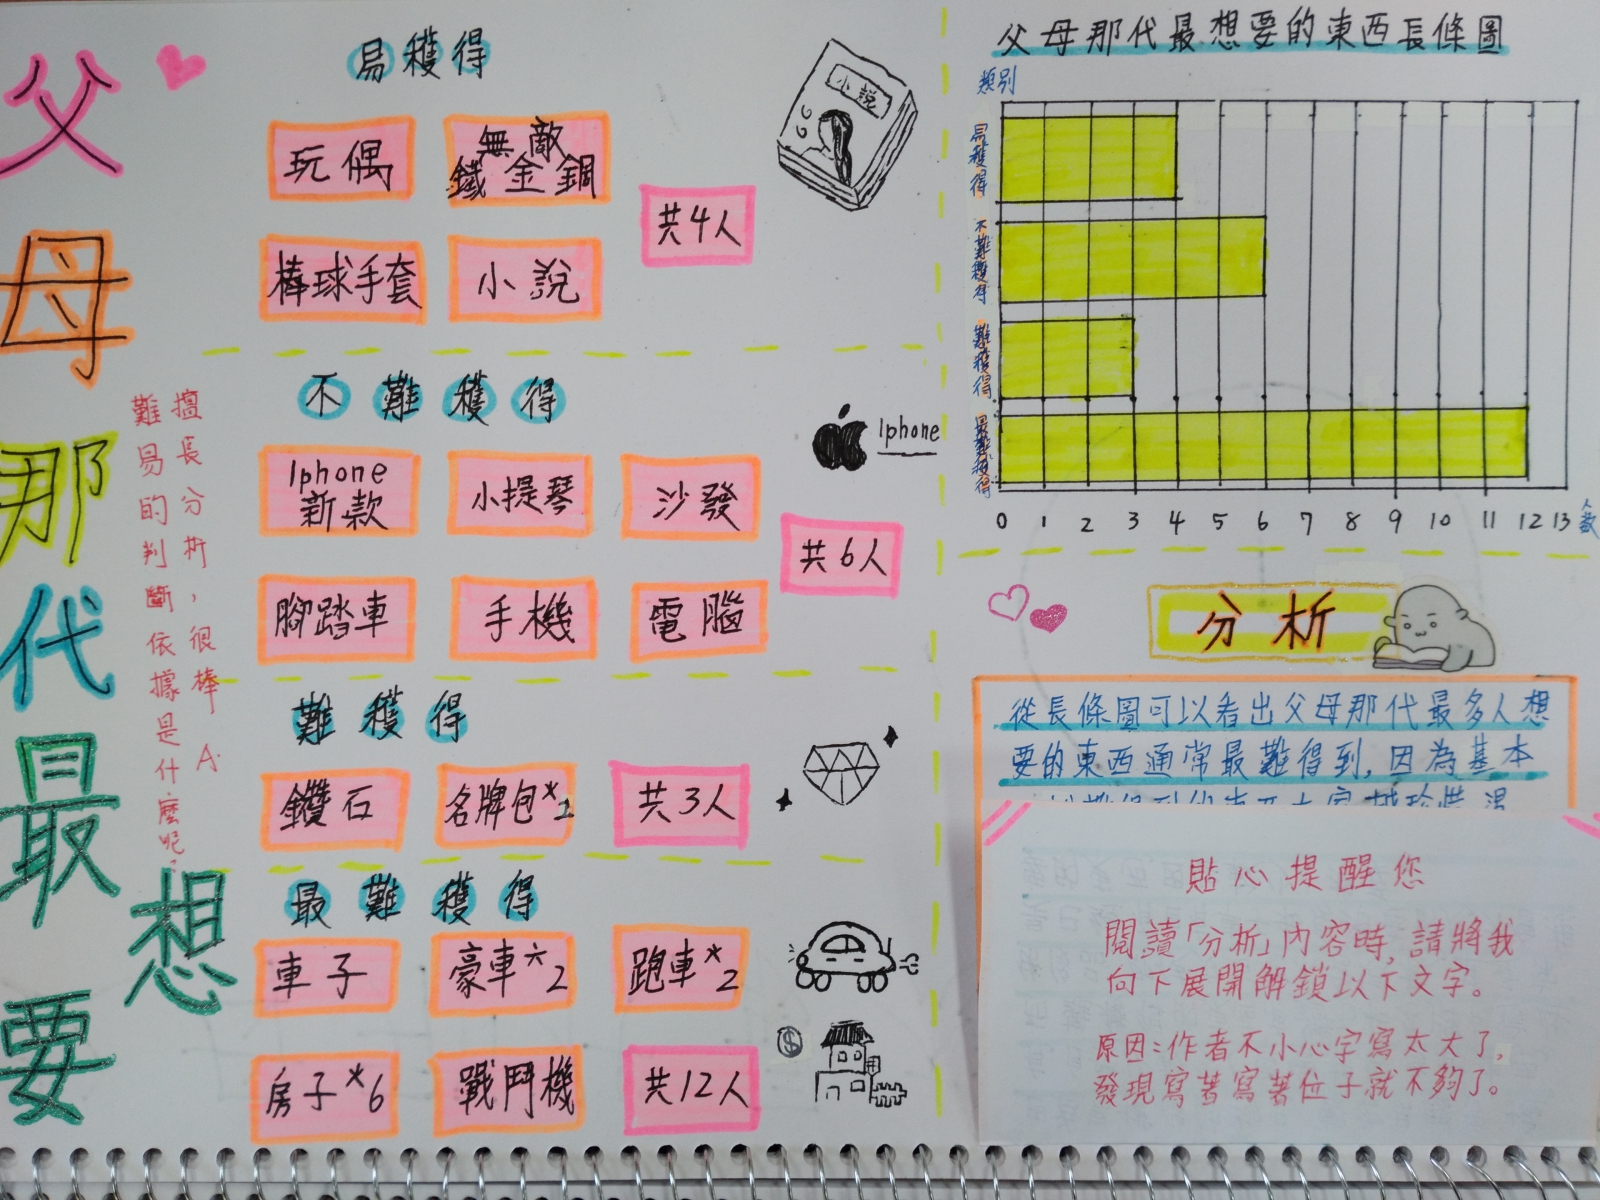 父母那代最想要
擅長分析，很棒 A
難易的判斷依據是什麼呢？
易獲得
玩偶
無敵
鐵金鋼
共4人
棒球手套
小說
小說
不難獲得
Iphone
新款
小提琴
沙發
共6人
腳踏車
手機
電腦
Iphone
難獲得
鑽石
名牌包*2
共3人
最難獲得
車子
豪車*2
跑車*2
房子*6
戰鬥機
共12人
$
父母那代最想要的東西長條圖
類別
易獲得
不難獲得
難獲得
最難獲得
0 1 2 3 4 5 6 7 8 9 10 11 12 13 人數
分析
從長條圖可以看出父母那代最多人想
要的東西通常最難得到，因為基本
貼心提醒您
閱讀「分析」內容時，請將我
向下展開解鎖以下文字。
原因：作者不小心字寫太大了，
發現寫著寫著位子就不夠了。